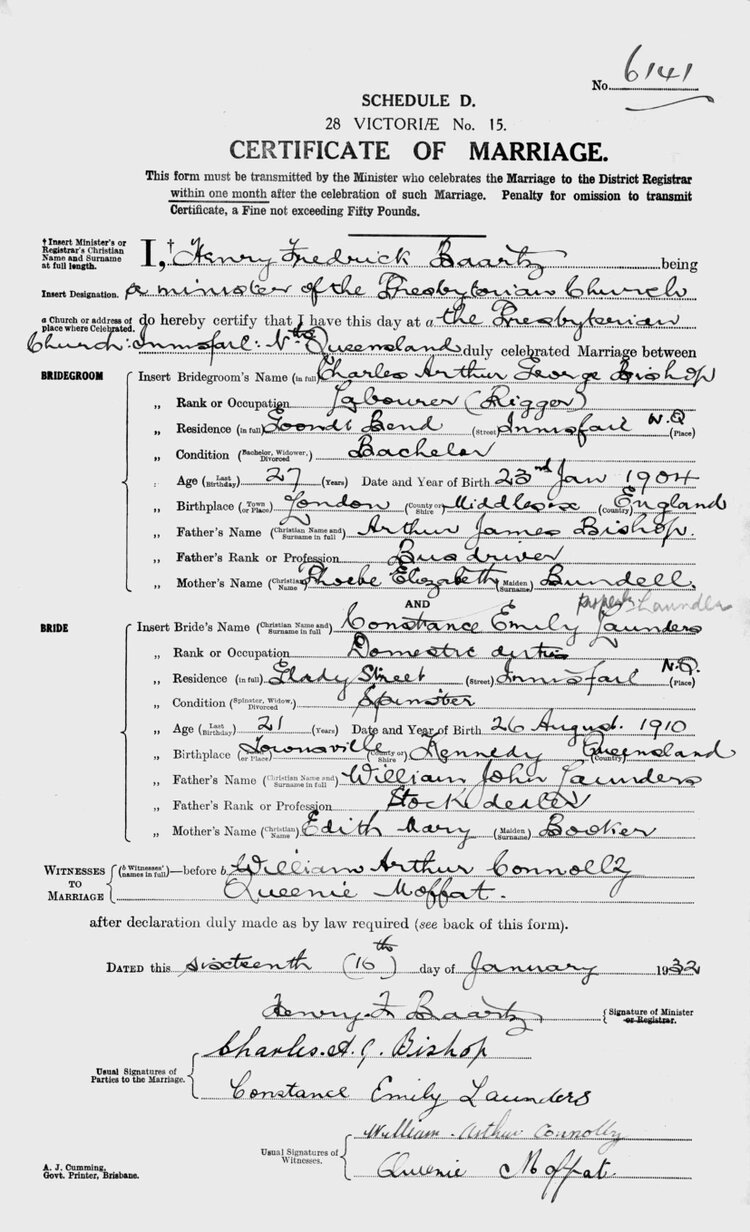 No. 6141
SCHEDULE D.
28 VICTORIÆ No. 15.
CERTIFICATE OF MARRIAGE.
This form must be transmitted by the Minister who celebrates the Marriage to the District Registrar
within one month after the celebration of such Marriage. Penalty for omission to transmit
Certificate, a Fine not exceeding Fifty Pounds.
† Insert Minister's or Registrar's Christian Name and Surname at full length. I,† Henry Fredrick Baartz being
Insert Designation. a minister of the Presbyterian Church
a Church or address of place where Celebrated. do hereby certify that I have this day at a the Presbyterian
Church: Innisfail: Nth Queensland duly celebrated Marriage between
BRIDEGROOM Insert Bridegroom's Name (in full) Charles Arthur George Bishop
„ Rank or Occupation Labourer (Rigger)
„ Residence (in full) Goondi Bend (Street) Innisfail N.Q (Place)
„ Condition (Bachelor, Widower, Divorced) Bachelor
„ Age (Last Birthday) 27 (Years) Date and Year of Birth 23rd Jan 1904
„ Birthplace (Town or Place) London (County or Shire) Middlesex (Country) England
„ Father's Name (Christian Name and Surname in full) Arthur James Bishop.
„ Father's Rank or Profession Bus driver
„ Mother's Name (Christian Name) Phoebe Elizabeth (Maiden Surname) Bundell.
AND
Launder
BRIDE Insert Bride's Name (Christian Name and Surname in full) Constance Emily Launders
„ Rank or Occupation Domestic duties
„ Residence (in full) Glady Street (Street) Innisfail N.Q. (Place)
„ Condition (Spinster, Widow, Divorced) Spinster
„ Age (Last Birthday) 21 (Years) Date and Year of Birth 26 August. 1910
„ Birthplace (Town or Place) Townsville (County or Shire) Kennedy (Country) Queensland
„ Father's Name (Christian Name and Surname in full) William John Launders
„ Father's Rank or Profession Stock dealer
„ Mother's Name (Christian Name) Edith Mary (Maiden Surname) Booker
WITNESSES TO MARRIAGE (b Witnesses' names in full)—before b William Arthur Connolly
Queenie Moffat.
after declaration duly made as by law required (see back of this form).
DATED this sixteenth (16th) day of January 1932
Henry. F Baartz Signature of Minister or Registrar.
Charles. A. G. Bishop
Usual Signatures of Parties to the Marriage.
Constance Emily Launders
William Arthur Connolly
Usual Signatures of Witnesses.
Queenie Moffat.
A. J. Cumming,
Govt. Printer, Brisbane.